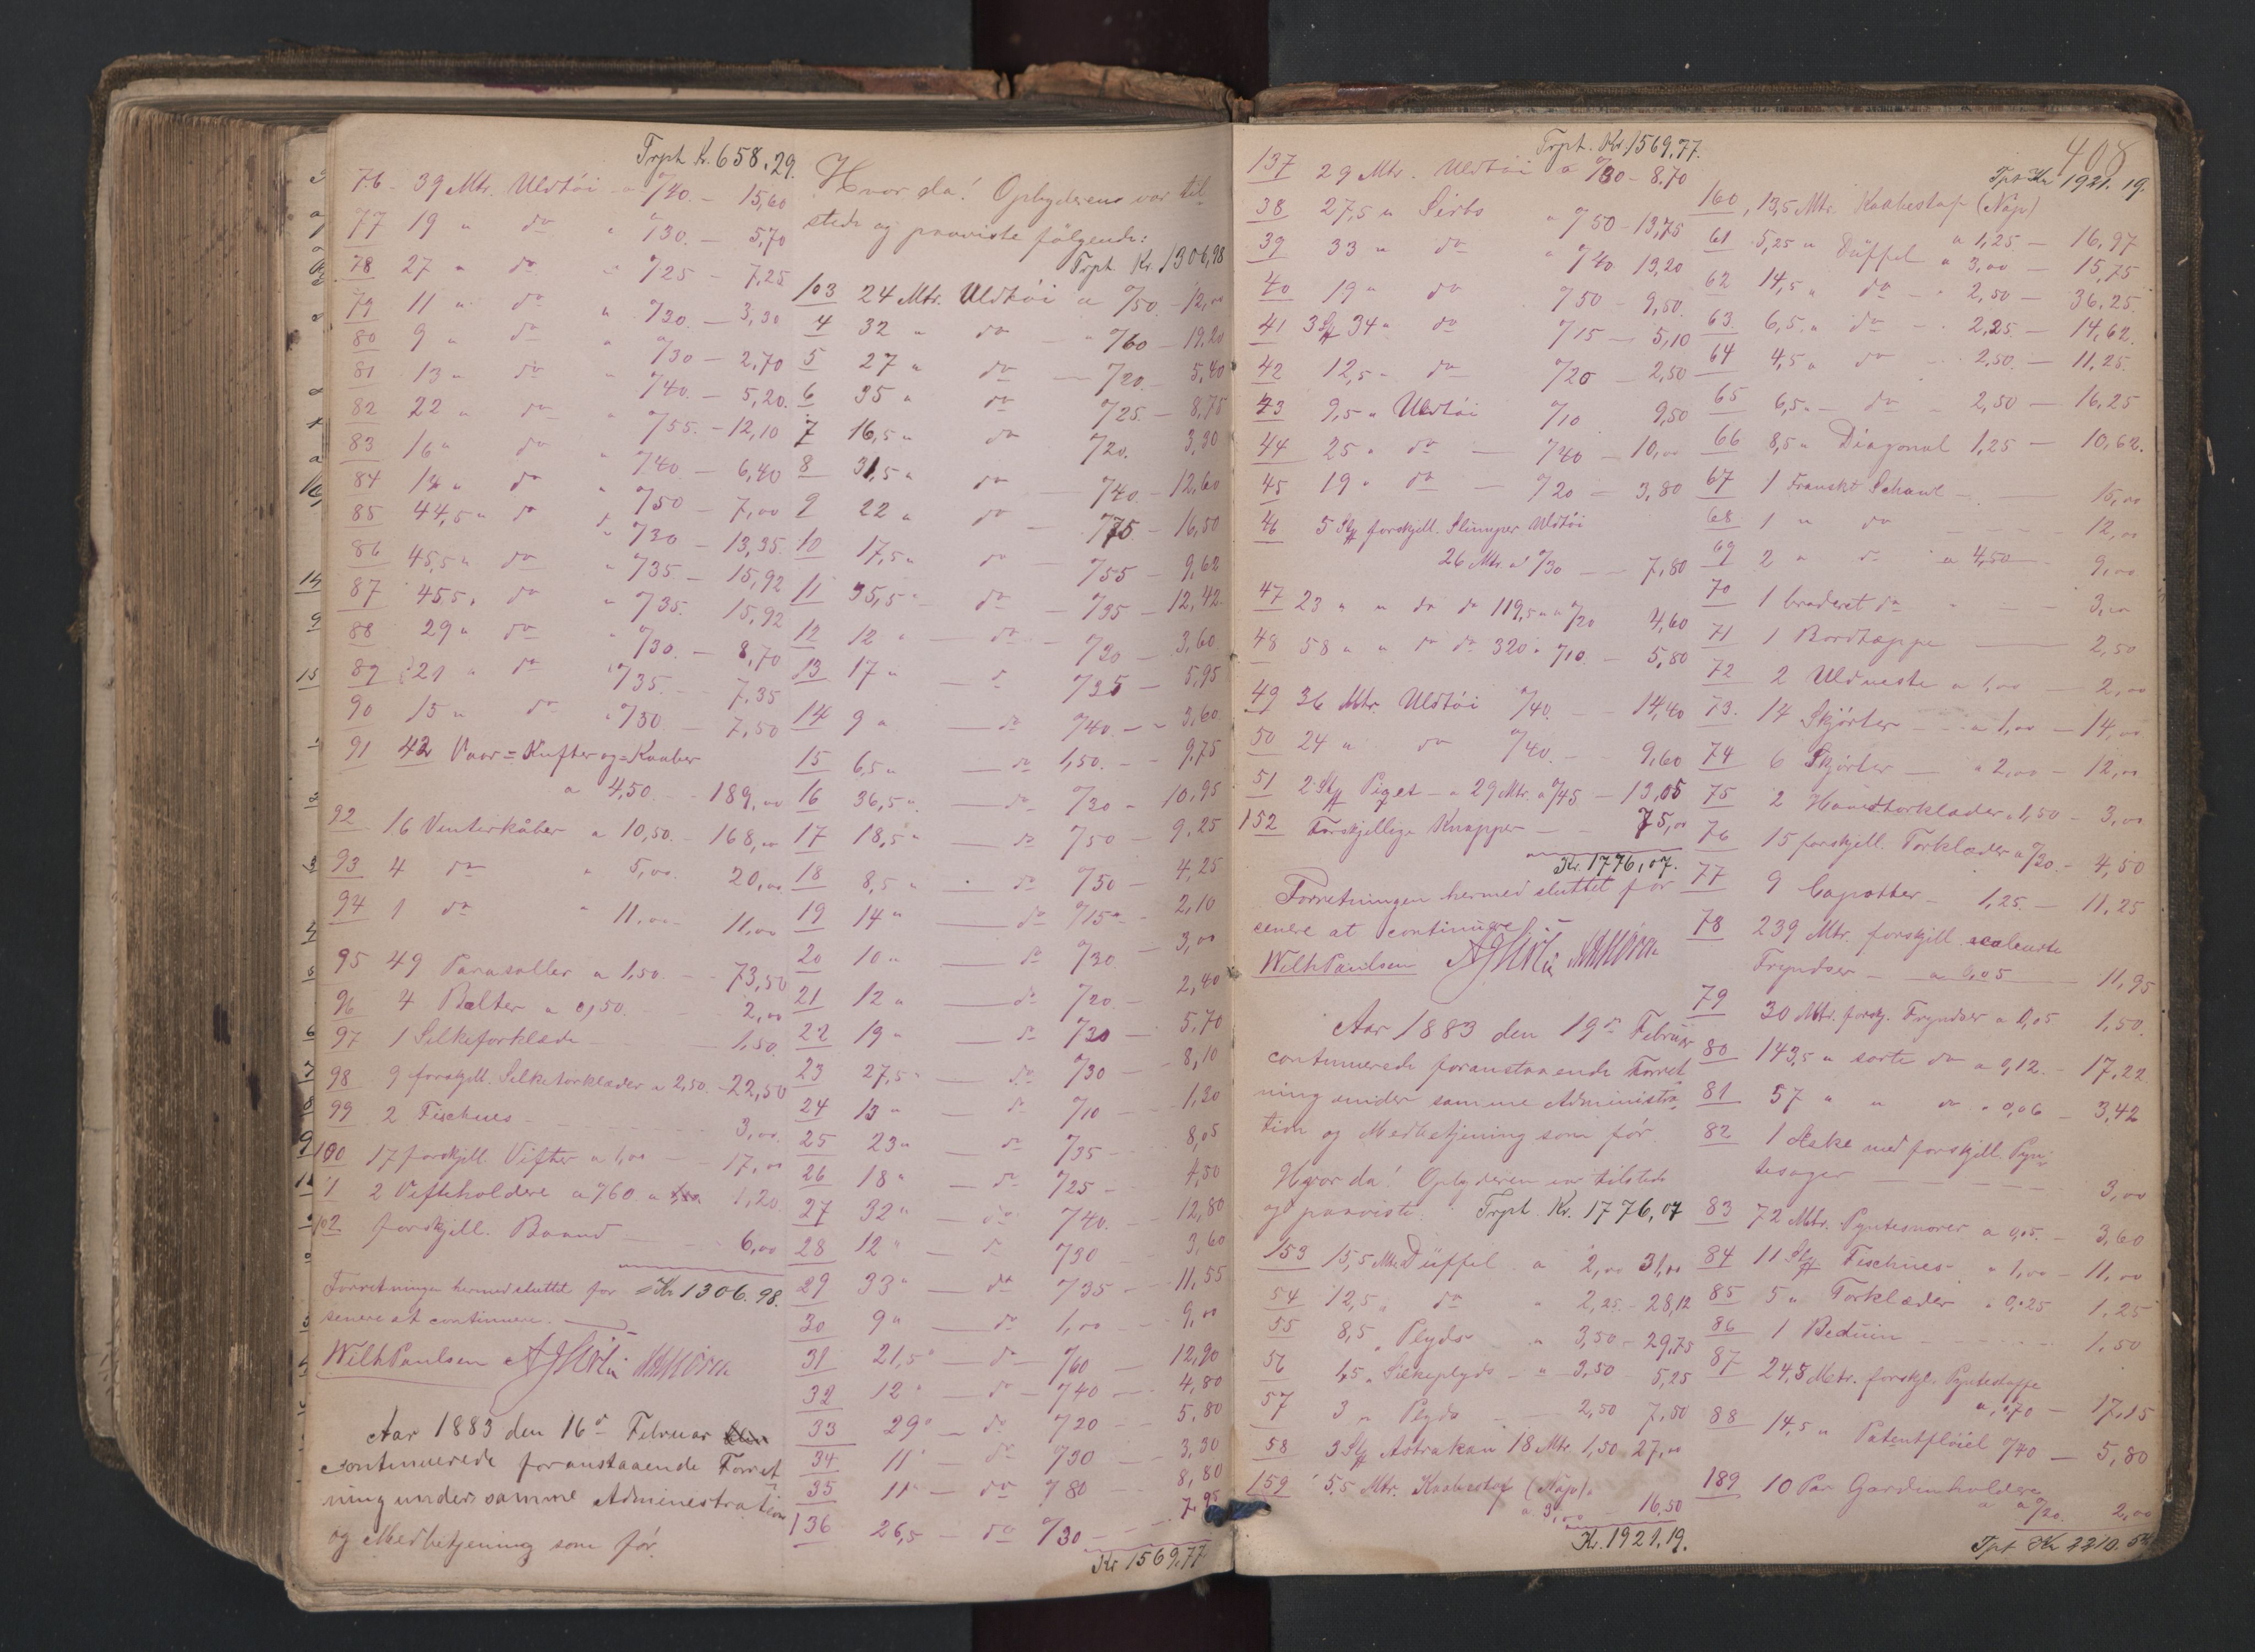 Trpt K. 658.29.
76 - 39 Mtr. Uldtöi a 0/40. - 15,60
77 19 " do " 0/30. - 5,70
78 27 " do " 0/25 - 7,25
79 11 " do " 0/30. - 3,30
80 9 " do " 0/30 - 2,70
81 13 " do " 0/40. - 5,20.
82 22 " do " 0/55. - 12,10
83 16 " do 0/40 - 6,40
84 14 " do " 0/50 - 7,00
85 44,5 " do " 0/30 - 13,35
86 45,5 " do " 0/35 - 15,92
87 45,5 " do " 0/35. 15,92
88 29 " do " 0/30. - 8,70
89 21 " do " 0/35. - 7,35
90 15 " do " 0/50 - 7,50
91 42 Vaar=Kufter og=Kaaber
a 4,50 - 189,00
92 16 Vinterkåber a 10,50. - 168,00
93 4 do " 5,00. 20,00
94 1 do " 11,00 11,00
95 49 Parasoller a 1,50. - 73,50
96 4 Belter a 0,50. - 2,00
97 1 Silkeforklæde - 1,50.
98 9 forskjell. Silketörklæder a 2,50 - 22,50
99 2 Fischues - 3,00.
100 17 forskjell. Vifter a 1,00 - 17,00
1 2 Vifteholdere a 0/60 1,20
102 forskjell. Baand 6,00
Forretningen hermed sluttet for Kr 1306.98.
senere at continuere.
Wilh Paulsen
Aar 1883 den 16de Februar
continuerede foranstaaende Forret
ning under samme Administration
og Medbetjening som för.
Hvor da! Opbyderens var til
stede og paaviste fölgende:
Trpt. Kr 1306,98
103 24 Mtr. Uldtöi a 0/50 - 12,00
4 32 " do - " 0/60 - 19,20
5 27 " do - 0/20. - 5,40
6 35 " do 0/25. - 8,75
7 16,5 " do 0/20. 3,30
8 31,5 " do - 0/40. - 12,60
9 22 " do - 0/75 - 16,50
10 17,5 " do - 0/55 - 9,62
11 35,5 " - do - 0/35 - 12,42
12 12 " - do - 0/30 - 3,60
13 17 " - do 0/35 - 5,95
14 9 " - do 0/40. - 3,60
15 6,5 " - do 1,50. - 9,75
16 36,5 " - do 0/30 - 10,95
17 18,5 " - do 0/50 - 9,25
18 8,5 " - do 0/50 - 4,25
19 14 " - do 0/15 - 2,10
20 10 " - do 0/30 - 3,00
21 12 " - do 0/20 - 2,40
22 19 " - do 0/30 - 5,70
23 27,5 " - do 0/30 - 8,10
24 13 " - do 0/10 - 1,30
25 23 " - do 0/35 - 8,05
26 18 " - do 0/25 - 4,50
27 32 " - do 0/40. - 12,80
28 12 " - do 0/30 - 3,60
29 33 " - do 0/35 - 11,55
30 9 " - do 1,00 - 9,00
31 21,5 " - do - 0/60 - 12,90
32 12 " - do - 0/40 - 4,80
33 29 " - do 0/20 - 5,80
34 11 " - do 0/30 - 3,30
35 11 " - do 0/80 - 8,80
136 26,5 - do 0/30 - 7.95
Kr 1569,77
Trpt. Kr. 1569,77.
137 29 Mtr. Uldtöi a 0/30 - 8.70
38 27,5 " Sirts " 0/50 - 13,75
39 33 " do " 0/40 13,20
40 19 " do 0/50 - 9,50.
41 3 St 34 " do 0/15 - 5,10
42 12,5 " do 0/20 - 2,50
43 9,5 " Uldtöi 0/10 9,50
44 25 " do - 0/40 - 10,00
45 19 " do - 0/20 - 3,80
46 5 St forskjell. Slumper Uldtöi
26 Mtr a 0/30 - 7,80
47 23 " " do do 119,5 " a 0/20 4,60
48 58 " " do do 320 " 0/10. - 5,80
49 36 Mtr. Uldtöi 0/40. - 14,40
50 24 " do 0/40. - 9,60
51 2 St Piget - a 29 Mtr. a 0/45 - 13,05
152 Forskjellige Knapper - 75,00
Kr. 1776,07.
Forretningen hermed sluttet for
senere at continuere.
Wilh Paulsen
Aar 1883 den 19de Februar
continuerede foranstaaende Forret
ning under samme Administra
tion og Medbetjening som för.
Hvor da! Opbyderen var tilstede
og paaviste. Trpt. Kr. 1776,07
153 15,5 Mtr Düffel a 2,00 31,00
54 12,5 " do " 2,25. - 28,12
55 8,5 " Plyds " 3,50 - 29,75
56 1,5 " Silkeplyds - " 3,50 5,25
57 3 " Plyds 2,50 7,50
58 3 St Astrakan 18 Mtr. 1,50 27,00
159 5,5 Mtr. Kaabestof (Nap).
a 3,00 16,50
K. 1921.19.
408
Tpt Kr 1921.19.
160, 13,5 Mtr. Kaabestof (Nap)
a 1,25 - 16,97
61 5,25 " Düffel a 3,00 - 15,75
62 14,5 " do - " 2,50 - 36,25
63. 6,5 " do - 2,25 - 14,62.
64 4,5 " do - 2,50. - 11,25.
65 6,5 " do - 2,50 - 16,25
66 8,5 " Diagonal 1,25 - 10,62.
67 1 Franskt Schawl - 15,00
68 1 " do - 12,00
69 2 " do a 4,50 - 9,00
70 1 broderet do - 3,00
71 1 Bordtæppe - 2,50
72 2 Uldveste a 1,00 - 2,00
73. 14 Skjörter - a 1,00 - 14,00
74 6 Skjörter - " 2,00 - 12,00
75 2 Hovedtörklæder a 1,50 - 3,00
76 15 forskjell. Forklæder a 0/30. - 4,50
77 9 Capotter - 1,25. - 11,25
78 239 Mtr. forskjell. couleurte
Fryndser - a 0,05 - 11,95
79 30 Mtr. forskj. Fryndser a 0,05 1,50.
80 143,5 " sorte do a 0,12. - 17,22
81 57 " " do " 0,06 - 3,42
82 1 Æske med forskjell. Pyn-
tesager - 3,00
83 72 Mtr. Pyntesnorer a 0,05. - 3,60
84 11 St Fischues " 1,00 - 11,00
85 5 " Forklæder " 0,25 1,25
86 1 Beduin - 1,50
87 24,5 Mtr. forskjl. Pyntestoffe
a 0/70 - 17,15
88 14,5 " Patentflöiel 0/40 - 5,80
189 10 Par Gardinholdere
a 0/20. 2,00
Tpt Kr 2210.54